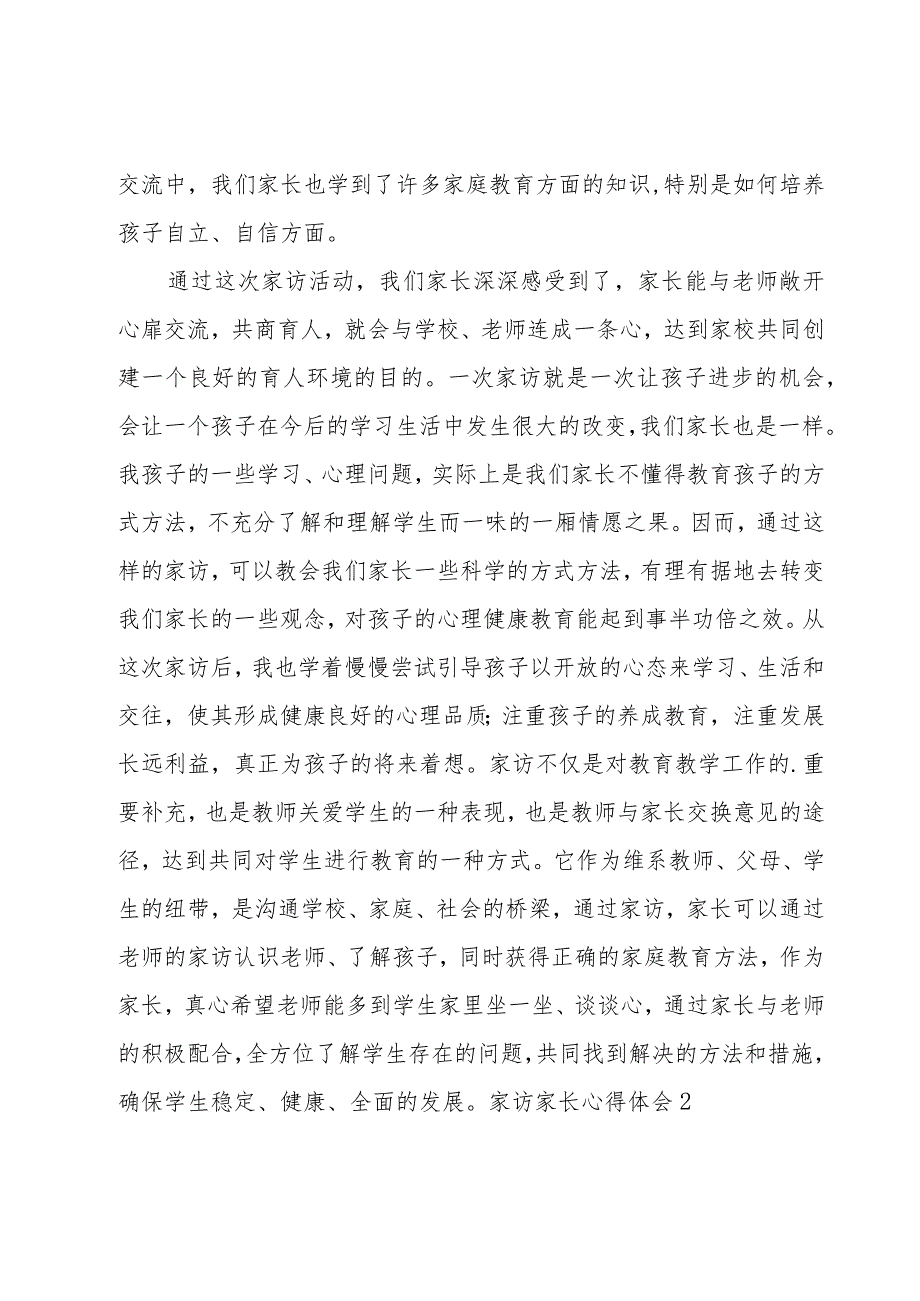 交流中，我们家长也学到了许多家庭教育方面的知识,特别是如何培养
孩子自立、自信方面。
通过这次家访活动，我们家长深深感受到了，家长能与老师敞开
心扉交流，共商育人，就会与学校、老师连成一条心，达到家校共同创
建一个良好的育人环境的目的。一次家访就是一次让孩子进步的机会，
会让一个孩子在今后的学习生活中发生很大的改变,我们家长也是一样。
我孩子的一些学习、心理问题，实际上是我们家长不懂得教育孩子的方
式方法，不充分了解和理解学生而一味的一厢情愿之果。因而，通过这
样的家访，可以教会我们家长一些科学的方式方法，有理有据地去转变
我们家长的一些观念，对孩子的心理健康教育能起到事半功倍之效。从
这次家访后，我也学着慢慢尝试引导孩子以开放的心态来学习、生活和
交往，使其形成健康良好的心理品质；注重孩子的养成教育，注重发展
长远利益，真正为孩子的将来着想。家访不仅是对教育教学工作的.重
要补充，也是教师关爱学生的一种表现，也是教师与家长交换意见的途
径，达到共同对学生进行教育的一种方式。它作为维系教师、父母、学
生的纽带，是沟通学校、家庭、社会的桥梁，通过家访，家长可以通过
老师的家访认识老师、了解孩子，同时获得正确的家庭教育方法，作为
家长，真心希望老师能多到学生家里坐一坐、谈谈心，通过家长与老师
的积极配合,全方位了解学生存在的问题,共同找到解决的方法和措施，
确保学生稳定、健康、全面的发展。家访家长心得体会2